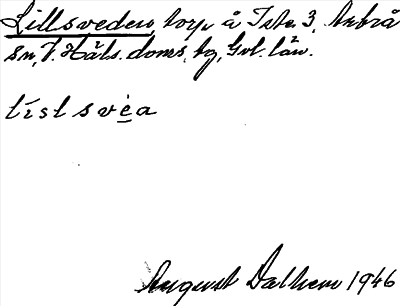 Lillsveden, torp å Iste 3, Arbrå
sn, V. Häls. doms. tg, Gvl. län.
líslsvèa
August Dalhem 1946